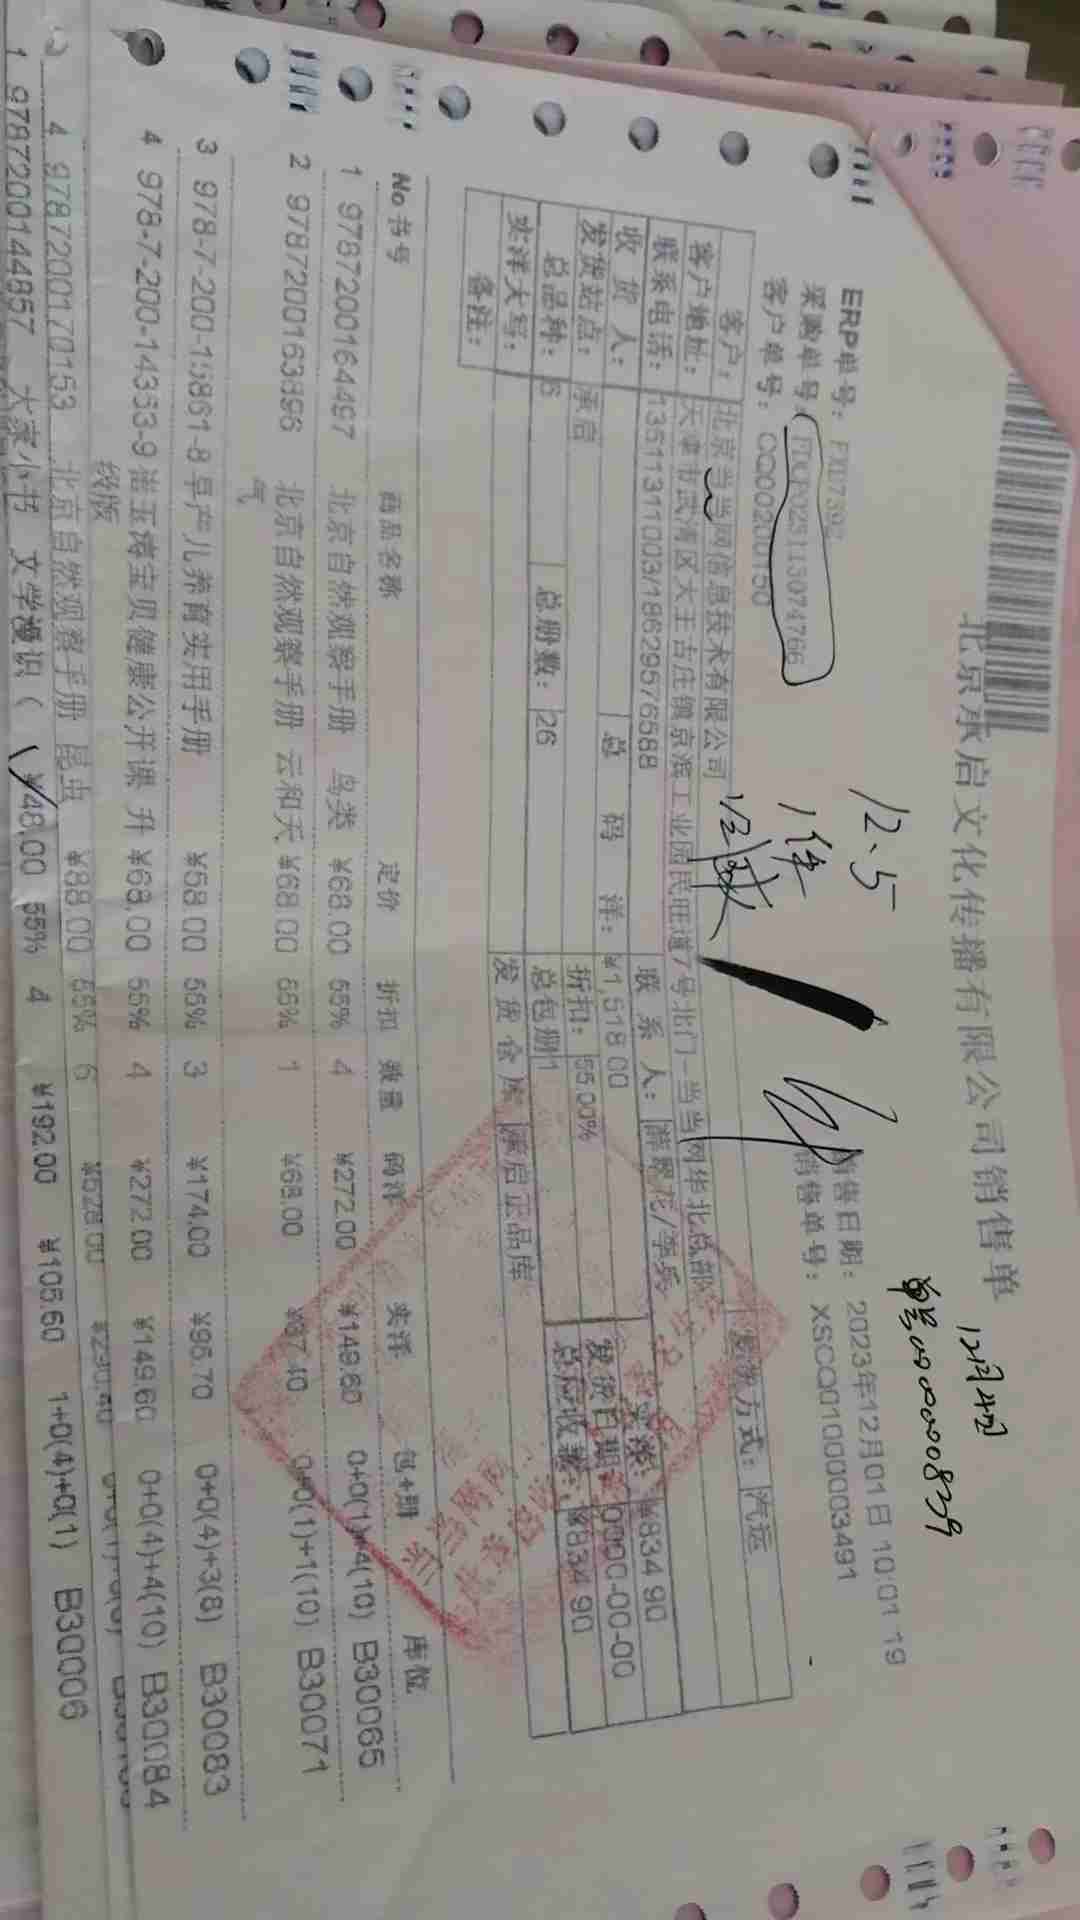 北京承启文化传播有限公司销售单
12月4日
12.5
1件
ERP单号: FX17392
销售日期: 2023年12月01日 10:01 19
采购单号: 
销售单号: XSCQ01000003491
客户单号: CQ000200150
客户: 北京当当网信息技术有限公司
要货方式: 汽运
客户地址: 天津市武清区大王古庄镇京滨工业园民旺道7号北门-当当网华北总部
联系电话: 13511311003/18629576588
联系人:
收货人:
总码洋: ¥1,518.00
¥834.90
发货站点: 承启
折扣: 55.00%
发货日期: 0000-00-00
总品种: 6
总册数: 26
总包册 1
总应收款: ¥834.90
实洋大写:
发货仓库 承启正品库
备注:
No 书号 商品名称 定价 折扣 数量 码洋 实洋 包+册 库位
1 9787200164497 北京自然观察手册 鸟类 ¥68.00 55% 4 ¥272.00 ¥149.60 0+0(1)+4(10) B30065
2 9787200163896 北京自然观察手册 云和天气 ¥68.00 55% 1 ¥68.00 ¥37.40 0+0(1)+1(10) B30071
3 978-7-200-15861-8 早产儿养育实用手册 ¥58.00 55% 3 ¥174.00 ¥95.70 0+0(4)+3(8) B30083
4 978-7-200-14353-9 崔玉涛宝贝健康公开课 升级版 ¥68.00 55% 4 ¥272.00 ¥149.60 0+0(4)+4(10) B30084
4 9787200170153 北京自然观察手册 昆虫 ¥88.00 55% 6 ¥528.00 ¥290.40
1 9787200144857 大家小书 文学漫识( ¥48.00 55% 4 ¥192.00 ¥105.60 1+0(4)+0(1) B30006